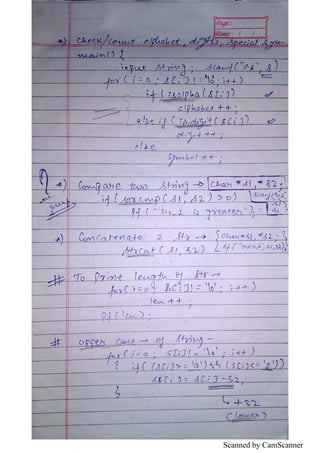 Page:
Date: / /
*) Check/Count alphabet, digits, special sym-
main() {
input string; scanf("%s", S)
for (i=0; S[i]!='\0'; i++)
if (isalpha(S[i])
alphabet++;
else if (isdigit(S[i])
digit++;
else
Symbol++;
*) Compare two string → char *S1, *S2;
if (strcmp(S1, S2) > 0)
Pf("Str_1 is greater");
*) Concatenate 2 Str → {char *S1, *S2;}
Strcat(S1, S2)
# To Print length of Str →
for (i=0; S[i]!='\0'; i++)
len++;
Pf(len);
# upper case → of String -
for (i=0; S[i]!='\0'; i++)
{ if ((S[i]>='a') && (S[i]<='z'))
S[i] = S[i]-32,
}
↳ +32
(lower)
Scanned by CamScanner